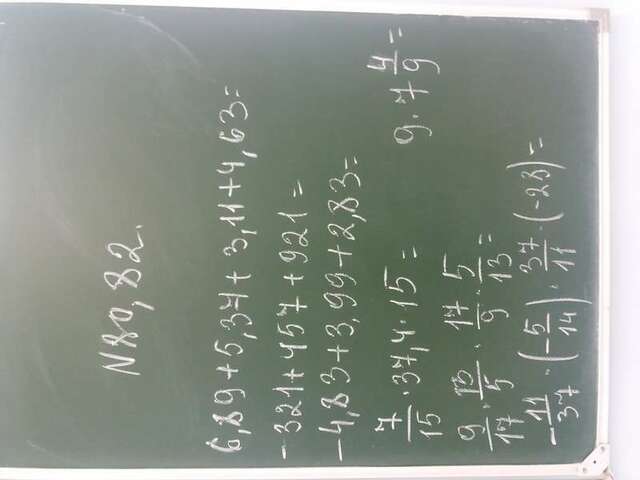 N80, 82.
6,89+5,37+3,11+4,63=
-321+457+921=
-4,83+3,99+2,83=
7/15 · 37,4 · 15 =
9 · 7 4/9 =
9/17 · 13/5 · 17/9 · 5/13 =
-11/37 · (-5/14) · 37/11 · (-28) =